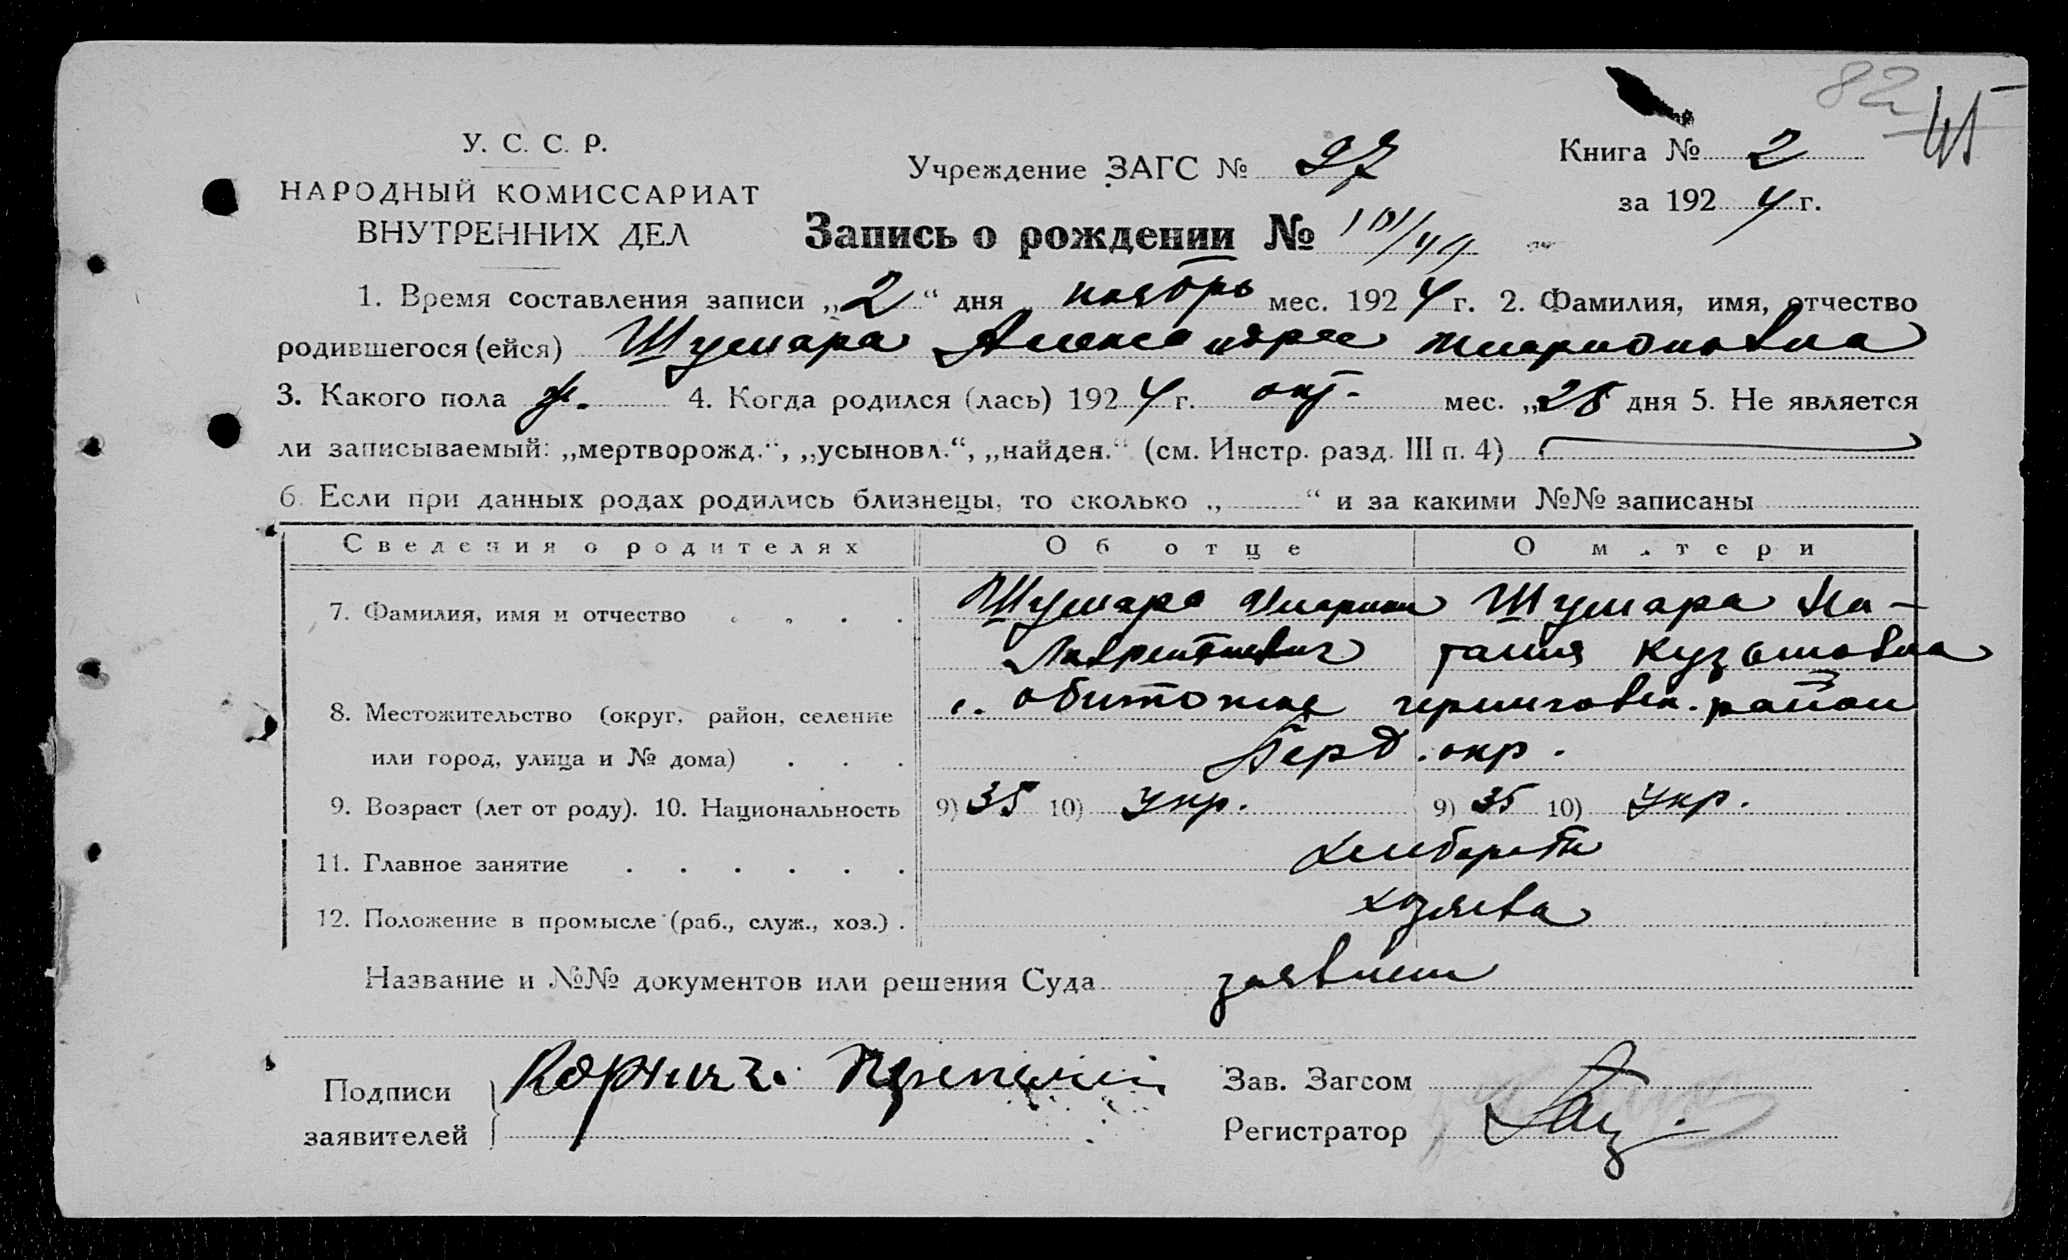 82
45
У. С. С. Р.
НАРОДНЫЙ КОМИССАРИАТ
ВНУТРЕННИХ ДЕЛ
Учреждение ЗАГС № 27
Книга № 2
за 1924 г.
Запись о рождении №
1. Время составления записи „2“ дня ноябрь мес. 1924 г. 2. Фамилия, имя, отчество
родившегося (ейся) Шумара Александра Иларионовна
3. Какого пола ж. 4. Когда родился (лась) 1924 г. окт. мес. „28 дня 5. Не является
ли записываемый: „мертворожд.“, „усыновл.“, „найден.“ (см. Инстр. разд. III п. 4)
6. Если при данных родах родились близнецы, то сколько „ “ и за какими №№ записаны
Сведения о родителях Об отце О матери
7. Фамилия, имя и отчество Шумара Иларион Шумара На-
Лаврентиевич талия Кузьмовна
8. Местожительство (округ, район, селение с. Обиточне черниговск. район
или город, улица и № дома) Берд. окр.
9. Возраст (лет от роду). 10. Национальность 9) 35 10) Укр. 9) 35 10) Укр.
11. Главное занятие хлебороб
12. Положение в промысле (раб., служ., хоз.) хозяева
Название и №№ документов или решения Суда
Подписи
заявителей
Зав. Загсом
Регистратор